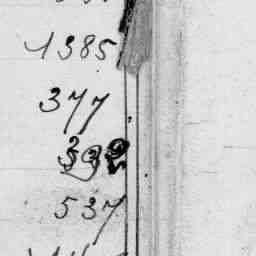 1385
377
392
537